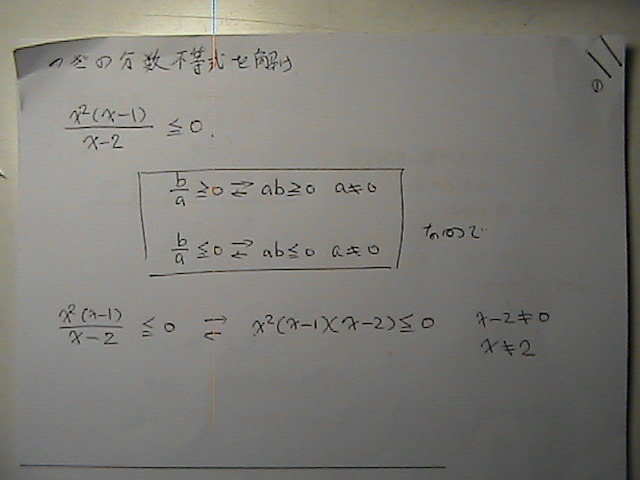 つぎの分数不等式を解け
①
x²(x-1)/x-2 ≦ 0.
b/a ≧ 0 ⇄ ab ≧ 0 a≠0
b/a ≦ 0 ⇄ ab ≦ 0 a≠0
なので
x²(x-1)/x-2 ≦ 0 ⇄ x²(x-1)(x-2) ≦ 0 x-2≠0
x≠2